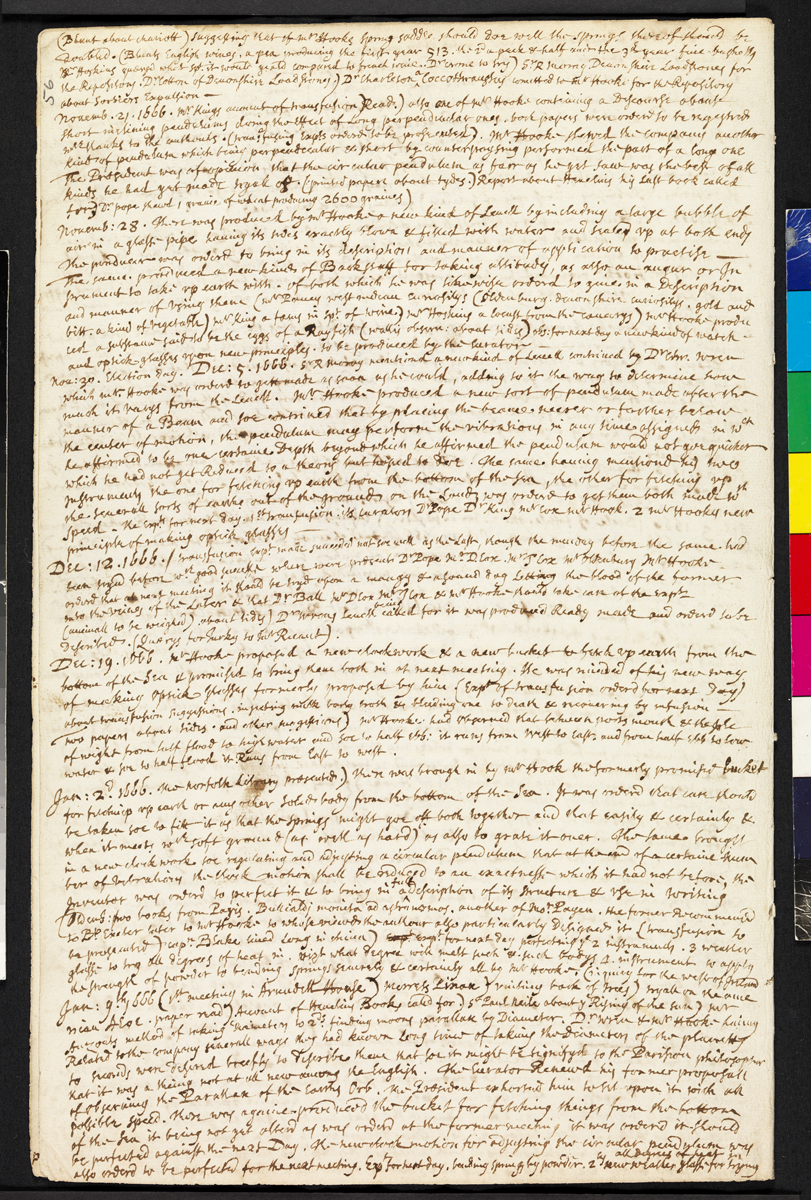 (Blunt about chariott) suggesting that if mr Hooks spring saddle should doe well the springs thereof should be
doubled. (Blunts English wines, a pea producing the first year 513. the 2d a peck & half and the 3d year five bushells
mr Hoskins what it would yeald compared to french wine. Dr crone to try) Sr R moray Devonshire Loadstones for
the Repository. Dr cotton of devonshire Loadstones.) Dr Charleton Coccothraustes comitted to mr Hooke for the Repository
about Sorbiers Expulsion —
56
Novemb. 21. 1666. mr Kings account of transfusion Read.) also one of mr Hooke containing a Discourse about
short inclining pendulums doing the effect of Long perpendicular ones. both papers were orderd to be registred
wth thanks to the authors. (transfusing Expts orderd to be prosecuted). Mr Hooke shewed the company another
kind of pendulum which being perpendicular & short by counterpoysing performed the part of a long one
The President was of opinion, that the circular pendulum as farr as he yet saw was the best of all
kinds he had yet made tryall of. (printed papers about tydes.) Report about Hevelius his Last book called
for) Dr pope shewd 1 graine of wheat producing 2600 graines)
Novemb: 28. There was produced by mr Hooke a new kind of Levell by including a large bubble of
air in a glasse pipe having its sides exactly blown & filled with water and sealed up at both ends
The producer was orderd to bring in its description and manner of application to practise —
The same produced a new kind of Backstaff for taking altitudes, as also an augur or In
strument to take up earth with. of both which he was likewise orderd to give in a Description
and manner of using them (mr Povey west indian curiositys (oldenburg. devonshire curiositys. gold and
bitt. a kind of vegetable) mr King a in spt. of wine) mr Hoskins a locust from the canarys) mr Hooke produ
ced a substance said to be the eggs of a Rayfish (wallis observ: about tides) obs: for next day a new kind of watch
and optick glasses upon new principles. to be produced by the curator —
nov: 30. Election day. Dec: 5. 1666. Sr R moray mentioned a new kind of Levell contrived by Dr Chr. wren
which mr Hooke was orderd to gett made as soon as he could, adding to it the way to determine how
much it varys from the Levell. Mr Hooke produced a new sort of pendulum made after the
manner of a Beam and soe contrived that by placing the beame neerer or farther below
the center of motion, the pendulum may perform the vibrations in any time assigned in wch
he affirmed to be one certaine Depth beyond which he affirmed the pendulum would not goe quicker
which he had not yet Reduced to a theory but hoped to doe. The same having mentiond his two
instruments the one for fetching up earth from the bottom of the Sea, the other for fetching up
the severall sorts of earths out of the grounds on the Land was orderd to get them both made wth
speed. The Expts for next day. 1st transfusion: its curators Dr Pope Dr King mr Cox mr Hook. 2 mr Hookes new
principle of making optick glasses —
Dec: 12. 1666. / Transfusion Expt made succeeded not soe well as the Last, though the munday before the same had
been tryed before wth good successe when were present Dr Pope mr D. Cox mr T Cox mr oldenburg Mr Hooke
orderd that at next meeting it should be tryd upon a mangy & a sound dog Letting the blood of the former
into the veins of the Later & that Dr Ball mr D Cox mr T Cox & mr Hooke should take care of the Expt
(animall to be weighed) about tides) Dr Wrens Levell being called for it was produced Ready made and orderd to be
described. (Querys for turky to mr Ricaut).
Dec: 19. 1666. Mr Hooke proposed a new clockwork & a new bucket to fetch up earth from the
bottom of the Sea & promised to bring them both in at next meeting. He was minded of his new way
of making Optick glasses formerly proposed by him (Expt of transfusion orderd for next day)
about transfusion suggestions. injecting milk body broth & bleeding one to death & recovering by infusion —
two papers about tides. and other suggestions) mr Hooke had observed that between ports mouth & the Isle
of wight from half flood to high water and soe to half ebb: it runs from West to East. and from half Ebb to low
water & soe to half flood it Runs from East to west.
Jan: 2d. 1666. The norfolk Library presented) There was brough in by mr Hook the formerly promised bucket
for fetching up earth or any other solid body from the bottom of the Sea. It was orderd that care should
be taken soe to fitt it as that the springs might goe off both together and that easily & certainly &
when it meets with soft ground (as well as hard) as also to grate it over. The same brought
in a new clockwork soe regulating and adjusting a circular pendulum that at the end of a certaine num
ber of vibrations the clock motion shall be reduced to an exactnesse which it had not before, the
Inventor was orderd to perfect it & to bring in a full description of its structure & use in writing
(oldenb: two books from Paris. Bullialdi monita ad astronomos. another of mor. Payen. the former Recommended
to Bp. Exeter later to mr Hooke to whose views the author also particularly designed it (transfusion to
be prosecuted) capt. Blake lived long in china) Expts for next day perfecting ye 2 instruments. 3 weather
glasse to try all degrees of heat in. with what degree will melt such & such bodys 4. instrument to apply
the strength of powder to bending springs sincerely & certainly all by mr Hooke. (inquirys for the west of Ireland
Jan: 9th 1666 (1st meeting in Arundell House) Merrets Linnen (knitting back of trees) tryall on the same
near Aeol. paper read) Account of Hevelius Books called for) Sr Paul Neile about ye Rising of the sun) mr
Auzouts method of taking Diameters to 2ds. finding moons parallax by Diameter. Dr wren & mr Hooke having
Related to the company severall ways they had known long since of taking the Diameters of the planetts
to seconds were desired breifly to describe them that soe it might be signifyd to the Parisian philosopher
that it was a thing not at all new among the English. The Curator Renewed his former proposall
of observing the Parallax of the Earths Orb. the President exhorted him to sett upon it with all
possible speed. There was againe produced the bucket for fetching things from the bottom
of the sea it being not yet altered as was orderd at the former meeting it was orderd it should
be perfected against the next Day. The new clock motion for adjusting the circular pendulum was
also orderd to be perfected for the next meeting. Expts for next day. bending springs by powder. 2d new weather glasse for trying all degrees of heat in